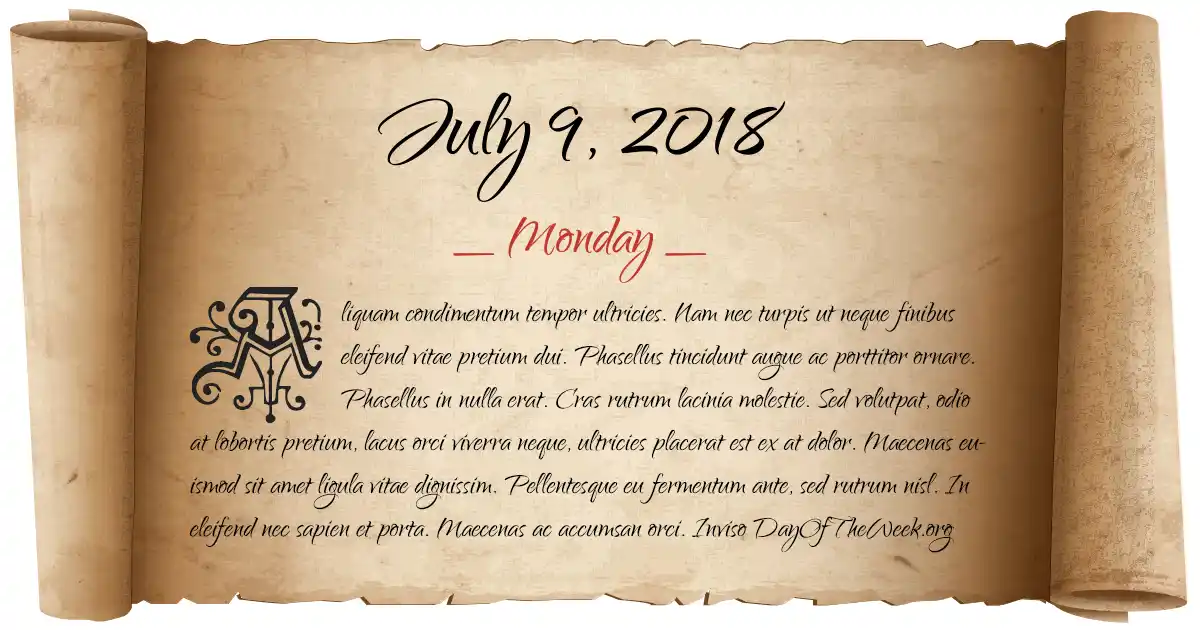 July 9, 2018
__ Monday __
Aliquam condimentum tempor ultricies. Nam nec turpis ut neque finibus
eleifend vitae pretium dui. Phasellus tincidunt augue ac porttitor ornare.
Phasellus in nulla erat. Cras rutrum lacinia molestie. Sed volutpat, odio
at lobortis pretium, lacus orci viverra neque, ultricies placerat est ex at dolor. Maecenas eu-
ismod sit amet ligula vitae dignissim. Pellentesque eu fermentum ante, sed rutrum nisl. In
eleifend nec sapien et porta. Maecenas ac accumsan orci. Inviso DayOfTheWeek.org